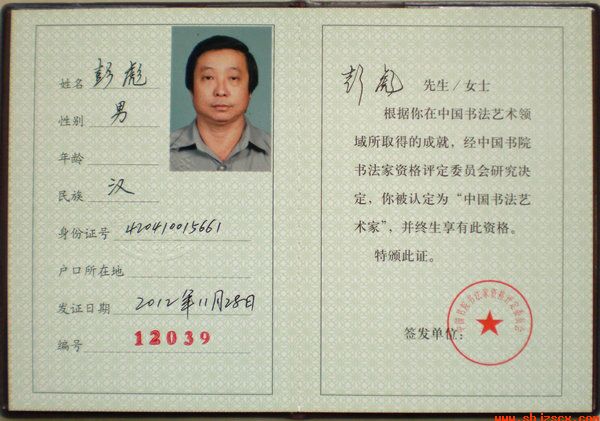 姓名 彭彪
性别 男
年龄
民族 汉
身份证号 420410015661
户口所在地
发证日期 2012年11月28日
编号 12039
彭彪 先生/女士
根据你在中国书法艺术领
域所取得的成就，经中国书院
书法家资格评定委员会研究决
定，你被认定为“中国书法艺
术家”，并终生享有此资格。
特颁此证。
签发单位：
中国书院书法家资格评定委员会
www.shjzscx.com